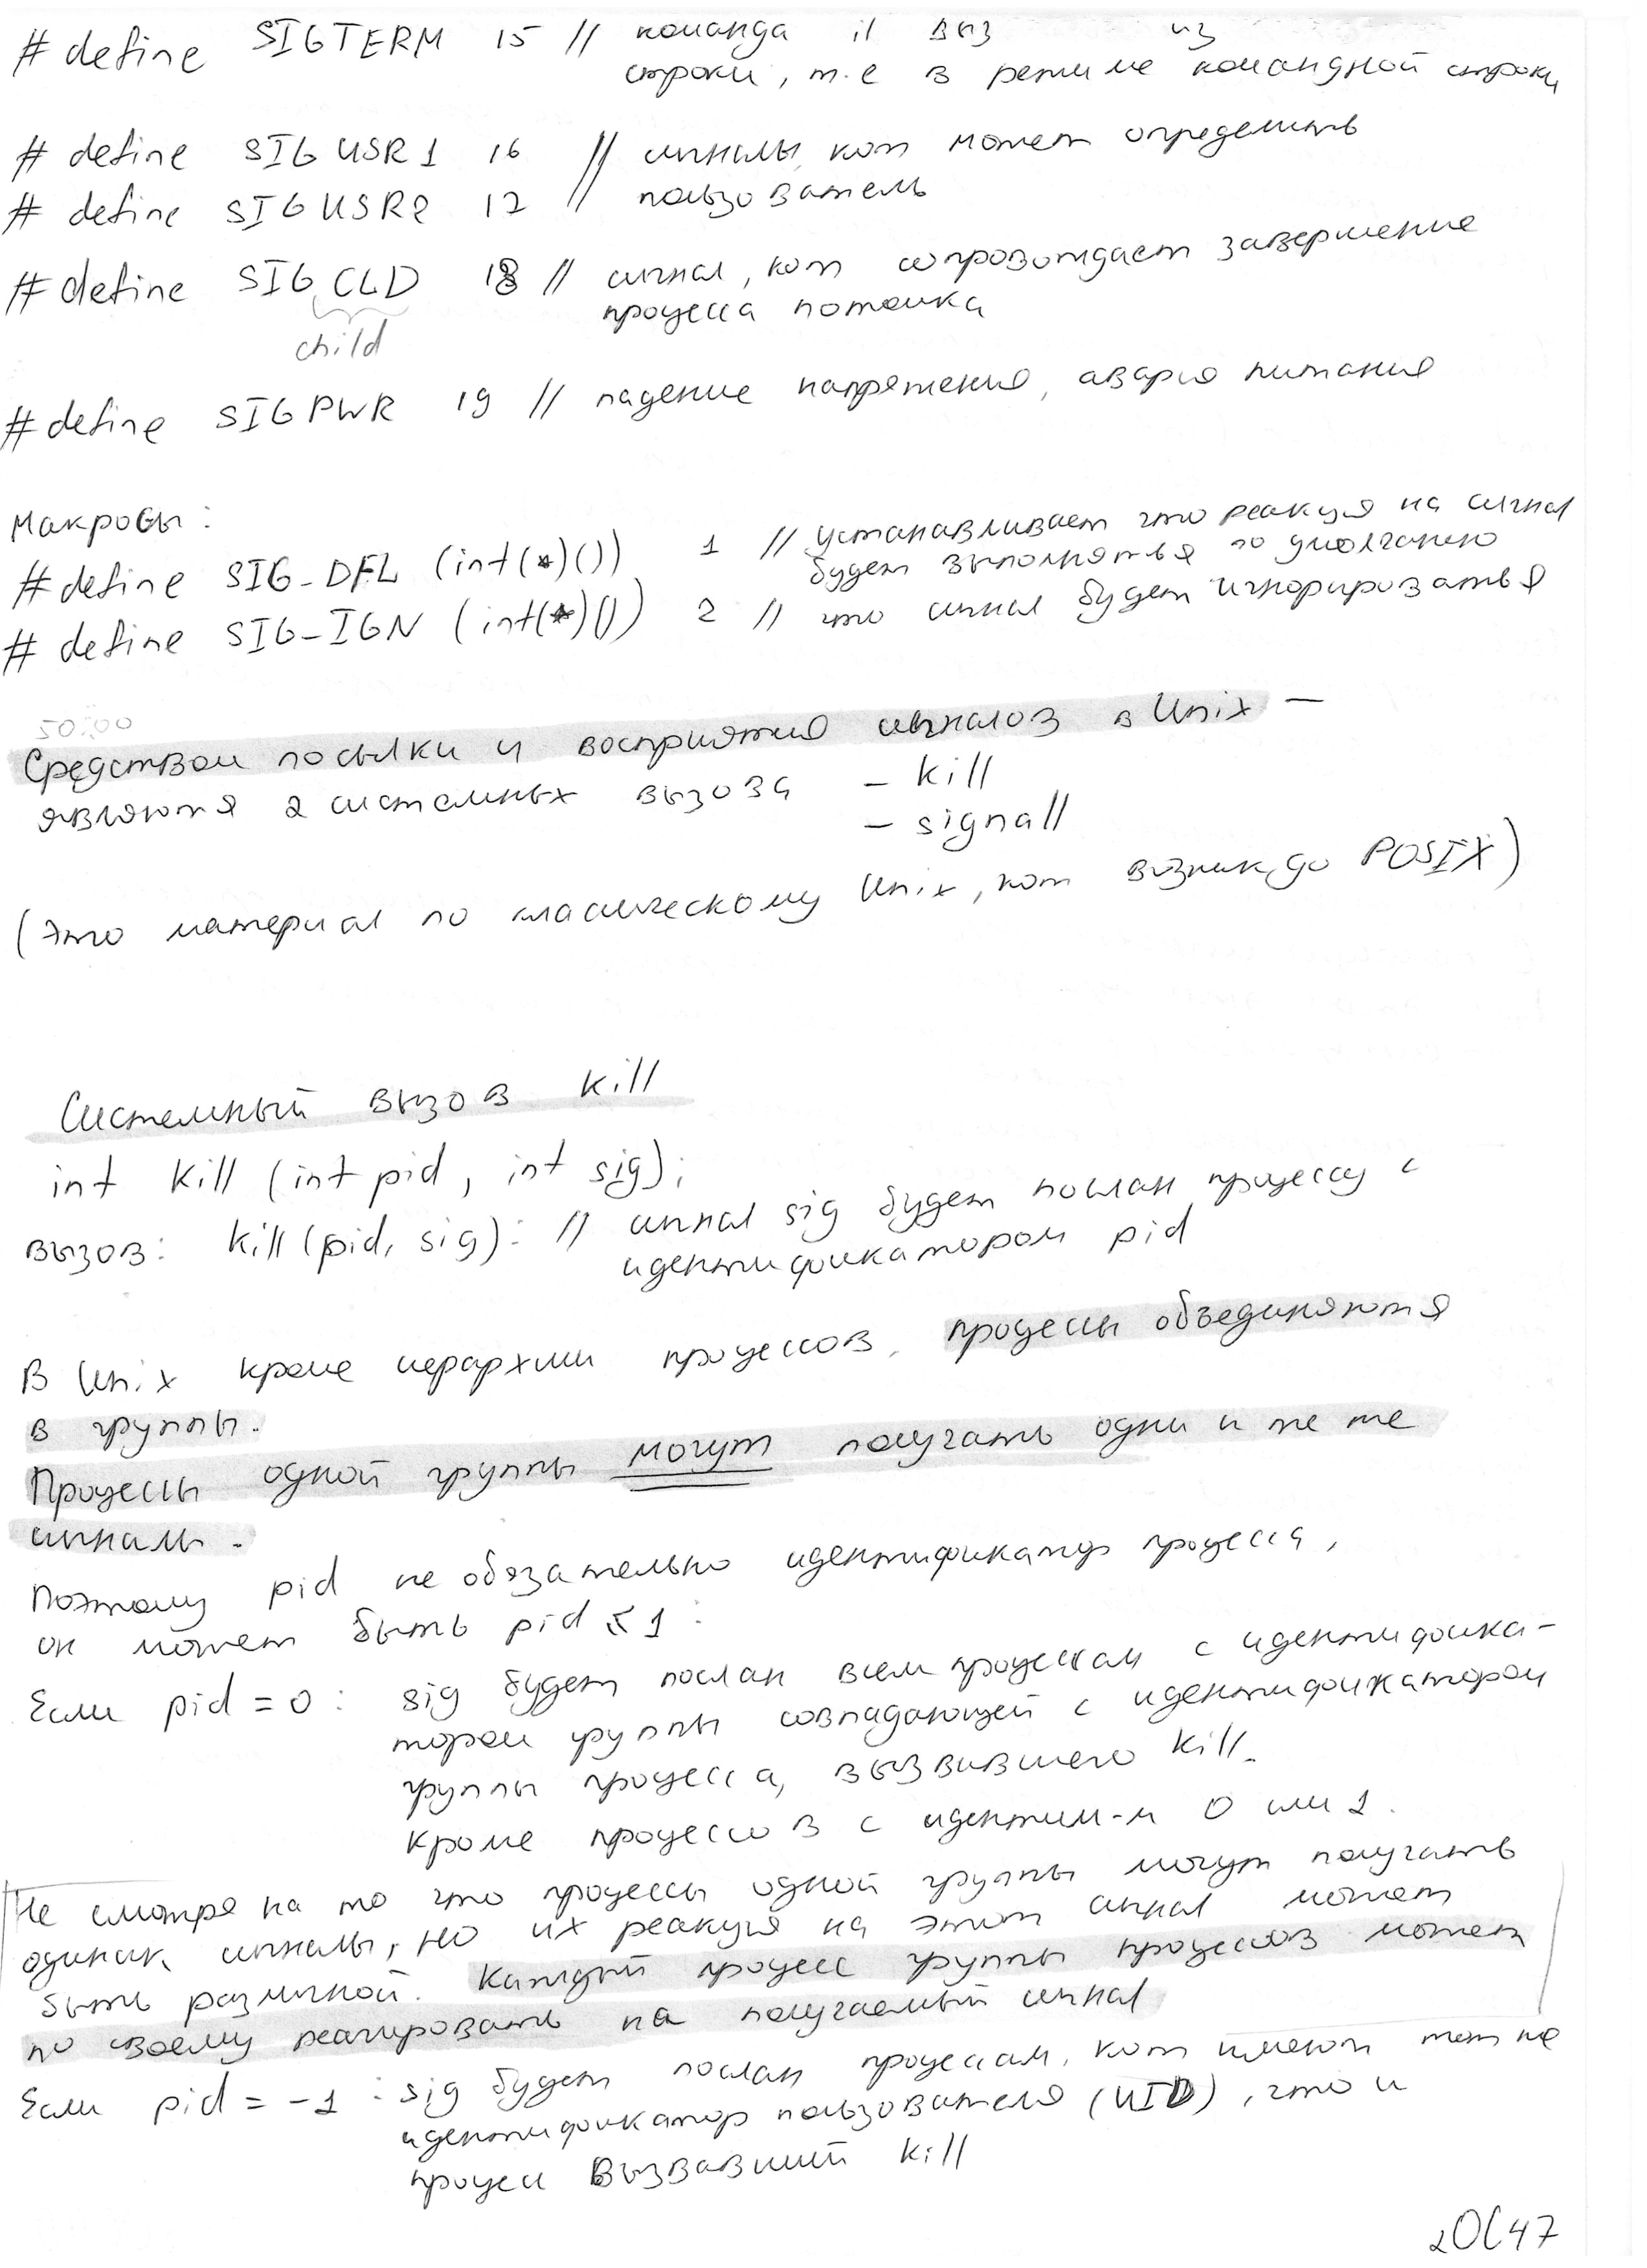 #define SIGTERM 15 // команда il выз из
строки, т.е в режиме командной строки
# define SIGUSR1 16 // сигналы, кот может определить
# define SIGUSR2 17 // пользователь
# define SIGCLD 18 // сигнал, кот сопровождает завершение
процесса потомка
child
#define SIGPWR 19 // падение напряжения, авария питания
Макросы:
#define SIG_DFL (int(*)()) 1 // устанавливает что реакция на сигнал
будет выполняться по умолчанию
# define SIG_IGN (int(*)()) 2 // что сигнал будет игнорироваться
50:00
Средством посылки и восприятия сигналов в Unix —
являются 2 системных вызова - kill
- signall
(Это материал по классическому Unix, кот возник до POSIX)
Системный вызов kill
int kill (int pid, int sig);
вызов: kill(pid, sig): // сигнал sig будет послан процессу с
идентификатором pid
В Unix кроме иерархии процессов, процессы объединяются
в группы.
Процессы одной группы могут получать одни и те же
сигналы.
Поэтому pid не обязательно идентификатор процесса,
он может быть pid ≤ 1:
Если pid = 0: sig будет послан всем процессам с идентифика-
тором группы совпадающей с идентификатором
группы процесса, вызвавшего kill.
Кроме процессов с идентиф-м 0 или 1.
Не смотря на то что процессы одной группы могут получать
одинак. сигналы, но их реакция на этот сигнал может
быть различной. Каждый процесс группы процессов может
по своему реагировать на получаемый сигнал
Если pid = -1 : sig будет послан процессам, кот имеют тот же
идентификатор пользователя (UID), что и
процесс вызвавший kill
2ОС47